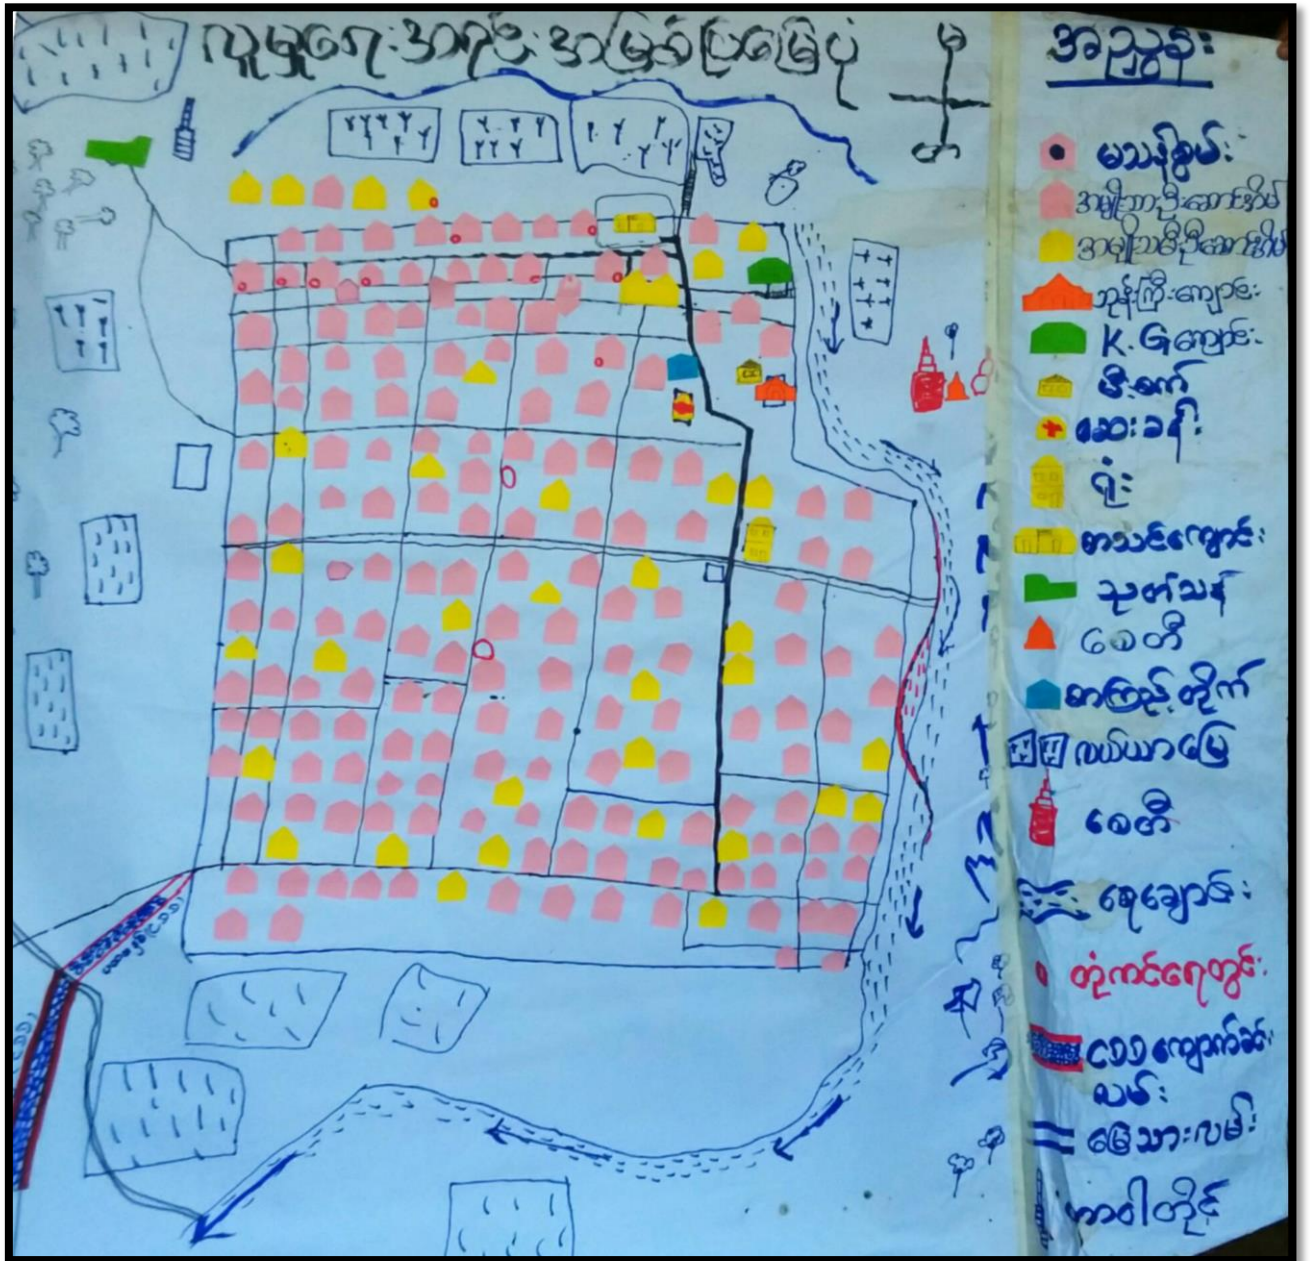 လူမှုရေးအရင်းအမြစ်ပြမြေပုံ
မှ
တ
အညွှန်း
မသန်စွမ်း
အမျိုးသားဦးဆောင်အိမ်
အမျိုးသမီးဦးဆောင်အိမ်
ဘုန်းကြီးကျောင်း
K.G ကျောင်း
မီးစက်
ဆေးခန်း
ရုံး
စာသင်ကျောင်း
ညှတ်သန်
စေတီ
စာကြည့်တိုက်
လယ်ယာမြေ
စေတီ
ရေချောင်း
တုံကင်ရေတွင်း
CDD ကျောက်ခင်း
လမ်း
မြေသားလမ်း
တာဝါတိုင်